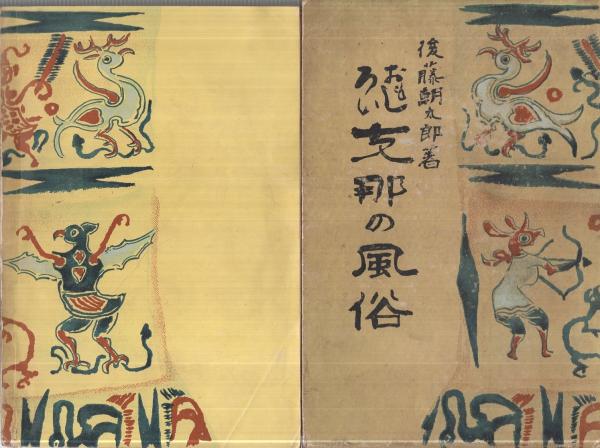 後藤朝太郎著
おもしろい
支那の風俗